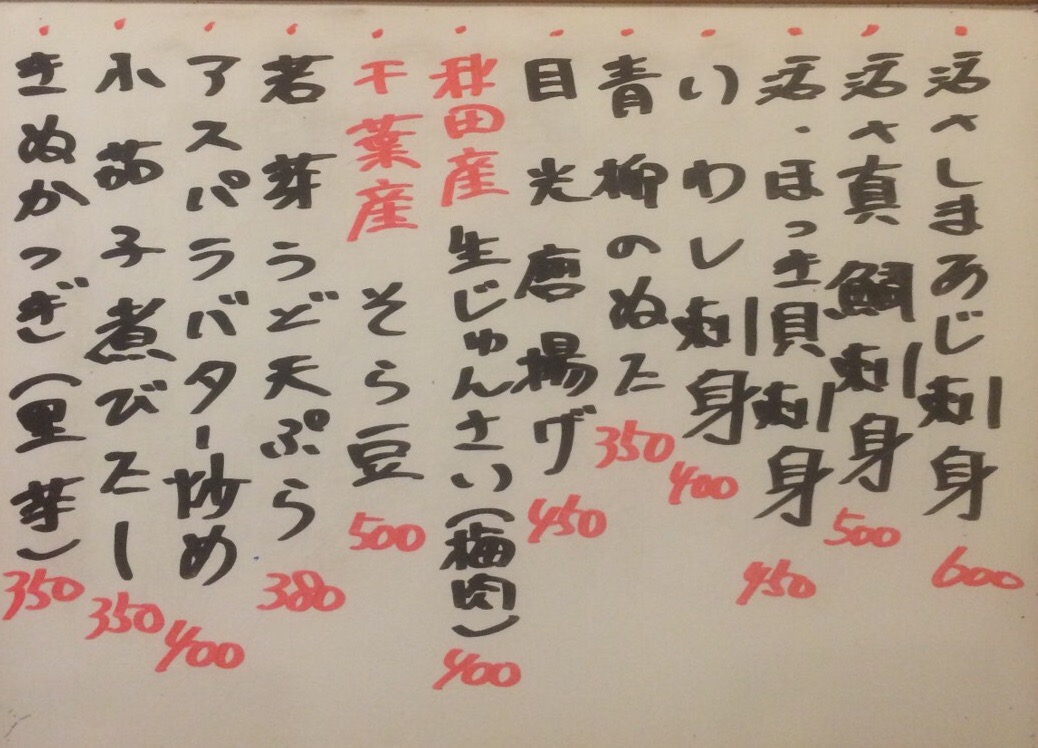 活〆しまあじ刺身 600
活〆真鯛刺身 500
活・ほっき貝刺身 450
いわし刺身 400
青柳のぬた 350
目光唐揚げ 450
秋田産生じゅんさい(梅肉) 400
千葉産そら豆 500
若芽うど天ぷら 380
アスパラバター炒め 400
小茄子煮びたし 350
きぬかつぎ(里芋) 350